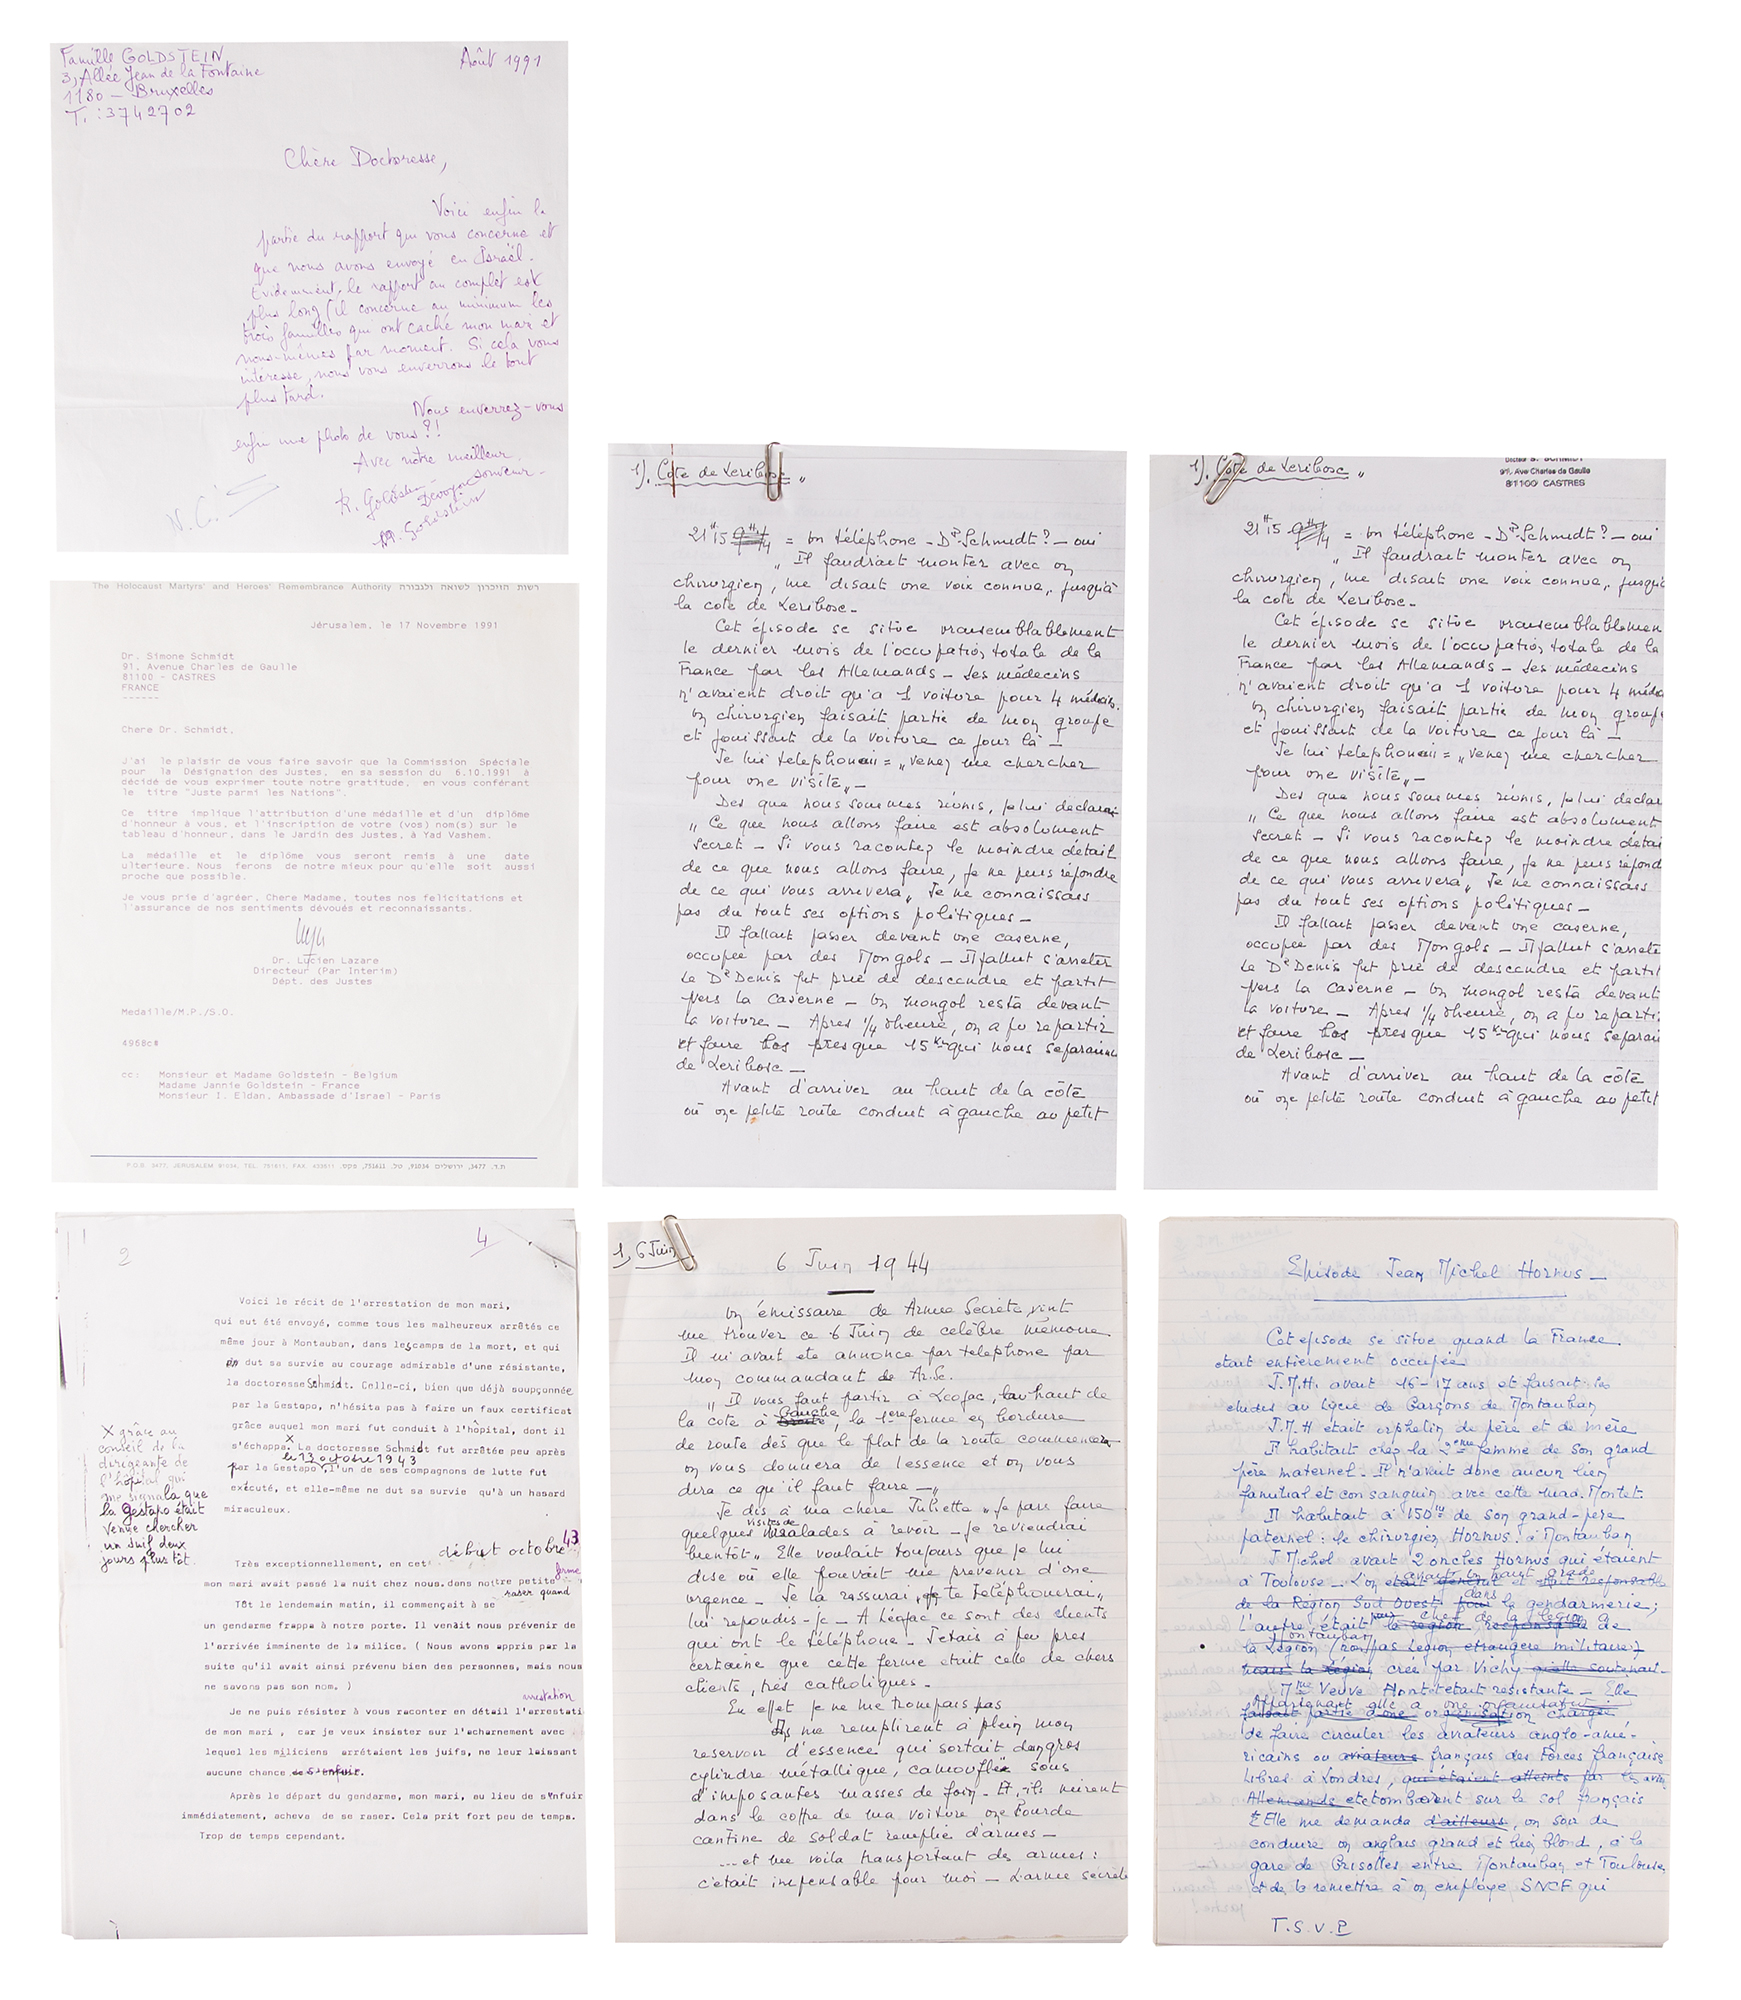 Famille GOLDSTEIN
3, Allée Jean de la Fontaine
1180 - Bruxelles
T. : 3742702
Août 1991
Chère Doctoresse,
Voici enfin la
partie du rapport qui vous concerne et
que nous avons envoyé en Israël.
Evidemment, le rapport au complet est
plus long (il concerne au minimum les
trois familles qui ont caché mon mari et
nous-mêmes par moment. Si cela vous
intéresse, nous vous enverrons le tout
plus tard.
Nous enverrez-vous
enfin une photo de vous ?!
Avec notre meilleur
souvenir -
R. Goldstein
M. Goldstein
The Holocaust Martyrs' and Heroes' Remembrance Authority רשות הזיכרון לשואה ולגבורה
Jérusalem, le 17 Novembre 1991
Dr. Simone Schmidt
91, Avenue Charles de Gaulle
81100 - CASTRES
FRANCE
------
Chere Dr. Schmidt,
J'ai le plaisir de vous faire savoir que la Commission Spéciale
pour la Désignation des Justes, en sa session du 6.10.1991 à
décidé de vous exprimer toute notre gratitude, en vous conférant
le titre "Juste parmi les Nations".
Ce titre implique l'attribution d'une médaille et d'un diplôme
d'honneur à vous, et l'inscription de votre (vos) nom(s) sur le
tableau d'honneur, dans le Jardin des Justes, à Yad Vashem.
La médaille et le diplôme vous seront remis à une date
ulterieure. Nous ferons de notre mieux pour qu'elle soit aussi
proche que possible.
Je vous prie d'agréer, Chere Madame, toutes nos felicitations et
l'assurance de nos sentiments dévoués et reconnaissants.
Dr. Lucien Lazare
Directeur (Par Interim)
Dépt. des Justes
Medaille/M.P./S.O.
4968c*
cc: Monsieur et Madame Goldstein - Belgium
Madame Jannie Goldstein - France
Monsieur I. Eldan, Ambassade d'Israel - Paris
P.O.B. 3477, JERUSALEM 91034, TEL. 751611, FAX. 433511 ת.ד. 3477, ירושלים 91034, טל. 751611, פקס.
1). Cote de Leribosc "
21H15 = Un téléphone - Dr Schmidt ? - oui
" Il faudrait monter avec un
chirurgien, me disait une voix connue, jusqu'à
la cote de Leribosc -
Cet épisode se situe vraisemblablement
le dernier mois de l'occupation totale de la
France par les Allemands - Les médecins
n'avaient droit qu'a 1 voiture pour 4 médecins.
Un chirurgien faisait partie de mon groupe
et jouissait de la voiture ce jour là -
Je lui telephonai = " Venez me chercher
pour une visite " -
Des que nous sommes réunis, je lui declarai
" Ce que nous allons faire est absolument
secret - Si vous racontez le moindre détail
de ce que nous allons faire, je ne puis répondre
de ce qui vous arrivera " Je ne connaissais
pas du tout ses options politiques -
Il fallait passer devant une caserne,
occupée par des Mongols - Il fallut s'arreter
Le Dr Denis fut prié de descendre et partit
vers la caserne - Un mongol resta devant
la voiture - Apres 1/4 d'heure, on a pu repartir
et faire les presque 15 Km qui nous separaient
de Leribosc -
Avant d'arriver au haut de la côte
où une petite route conduit à gauche au petit
1). Cote de Leribosc "
Docteur S. SCHMIDT
91, Ave Charles de Gaulle
81100 CASTRES
21H15 = Un téléphone - Dr Schmidt ? - oui
" Il faudrait monter avec un
chirurgien, me disait une voix connue, jusqu'à
la cote de Leribosc -
Cet épisode se situe vraisemblablemen
le dernier mois de l'occupation totale de la
France par les Allemands - Les médecins
n'avaient droit qu'a 1 voiture pour 4 médec
Un chirurgien faisait partie de mon groupe
et jouissait de la voiture ce jour là -
Je lui telephonai = " Venez me chercher
pour une visite " -
Des que nous sommes réunis, je lui declar
" Ce que nous allons faire est absolument
secret - Si vous racontez le moindre détai
de ce que nous allons faire, je ne puis répond
de ce qui vous arrivera " Je ne connaissais
pas du tout ses options politiques -
Il fallait passer devant une caserne,
occupée par des Mongols - Il fallut s'arrete
Le Dr Denis fut prié de descendre et partit
vers la caserne - Un mongol resta devant
la voiture - Apres 1/4 d'heure, on a pu repartir
et faire les presque 15 Km qui nous separai
de Leribosc -
Avant d'arriver au haut de la côte
où une petite route conduit à gauche au petit
2
4
Voici le récit de l'arrestation de mon mari,
qui eut été envoyé, comme tous les malheureux arrêtés ce
même jour à Montauban, dans les camps de la mort, et qui
dut sa survie au courage admirable d'une résistante,
la doctoresse Schmidt. Celle-ci, bien que déjà soupçonnée
par la Gestapo, n'hésita pas à faire un faux certificat
grâce auquel mon mari fut conduit à l'hôpital, dont il
s'échappa. X La doctoresse Schmidt fut arrêtée peu après
le 13 octobre 1943
par la Gestapo, l'un de ses compagnons de lutte fut
exécuté, et elle-même ne dut sa survie qu'à un hasard
miraculeux.
X grâce au
conseil de la
dirigeante de
l'hôpital qui
me signala que
la Gestapo était
venue chercher
un Juif deux
jours plus tôt.
début octobre 43
Très exceptionnellement, en cet
mon mari avait passé la nuit chez nous, dans notre petite ferme
Tôt le lendemain matin, il commençait à se raser quand
un gendarme frappa à notre porte. Il venait nous prévenir de
l'arrivée imminente de la milice. ( Nous avons appris par la
suite qu'il avait ainsi prévenu bien des personnes, mais nous
ne savons pas son nom. )
arrestation
Je ne puis résister à vous raconter en détail l'arrestati
de mon mari, car je veux insister sur l'acharnement avec
lequel les miliciens arrêtaient les juifs, ne leur laissant
aucune chance de s'enfuir.
Après le départ du gendarme, mon mari, au lieu de s'enfuir
immédiatement, acheva de se raser. Cela prit fort peu de temps.
Trop de temps cependant.
1, 6 Juin
6 Juin 1944
Un émissaire de Armée Secrète vint
me trouver ce 6 Juin de celèbre mémoire
Il m'avait ete annoncé par telephone par
mon commandant de Ar.Se.
" Il vous faut partir à Leojac, au haut de
la cote à gauche, la 1ere ferme en bordure
de route dès que le plat de la route commencera
on vous donnera de l'essence et on vous
dira ce qu'il faut faire - "
Je dis à ma chere Juliette " Je pars faire
quelques visites de malades à revoir - Je reviendrai
bientôt " Elle voulait toujours que je lui
dise où elle pouvait me prevenir d'une
urgence - Je la rassurai " Je te téléphonerai "
lui repondis-je - A Léojac ce sont des clients
qui ont le téléphone - J'etais à peu pres
certaine que cette ferme etait celle de chers
clients, très catholiques -
En effet je ne me trompais pas
Ils me remplirent à plein mon
reservoir d'essence qui sortait d'un gros
cylindre métallique, camouflé sous
d'imposantes masses de foin - Et, ils mirent
dans le coffre de ma voiture une lourde
cantine de soldat remplie d'armes -
... et me voila transportant des armes :
c'était impensable pour moi - L'armée secrète
Episode Jean Michel Hornus -
Cet episode se situe quand la France
etait entierement occupée
J.M.H. avait 16-17 ans et faisait ses
etudes au Lycée de Garçons de Montauban
J.M.H était orphelin de père et de mère
Il habitait chez la 2eme femme de son grand
père maternel - Il n'avait donc aucun lien
familial et consanguin avec cette mad. Montet.
Il habitait à 150m de son grand-père
paternel : le chirurgien Hornus à Montauban
J. Michel avait 2 oncles Hornus qui étaient
à Toulouse - L'un etait général et etait responsable
de la Region Sud Ouest dans la gendarmerie ;
L'autre était chef de la legion à Montauban
la Légion (non pas Legion etrangere militaire)
mais la légion crée par Vichy
Mme Veuve Montet etait resistante - Elle
faisait partie d'une organisation chargée
de faire circuler les aviateurs anglo-amé-
ricains ou aviateurs français des Forces françaises
Libres à Londres, qui étaient atteints par les avions
Allemands et tombaient sur le sol français
Elle me demanda d'ailleurs, un soir de
conduire un anglais grand et bien blond, à la
gare de Grisolles entre Montauban et Toulouse
et de le remettre à un employé SNCF qui
T.S.V.P